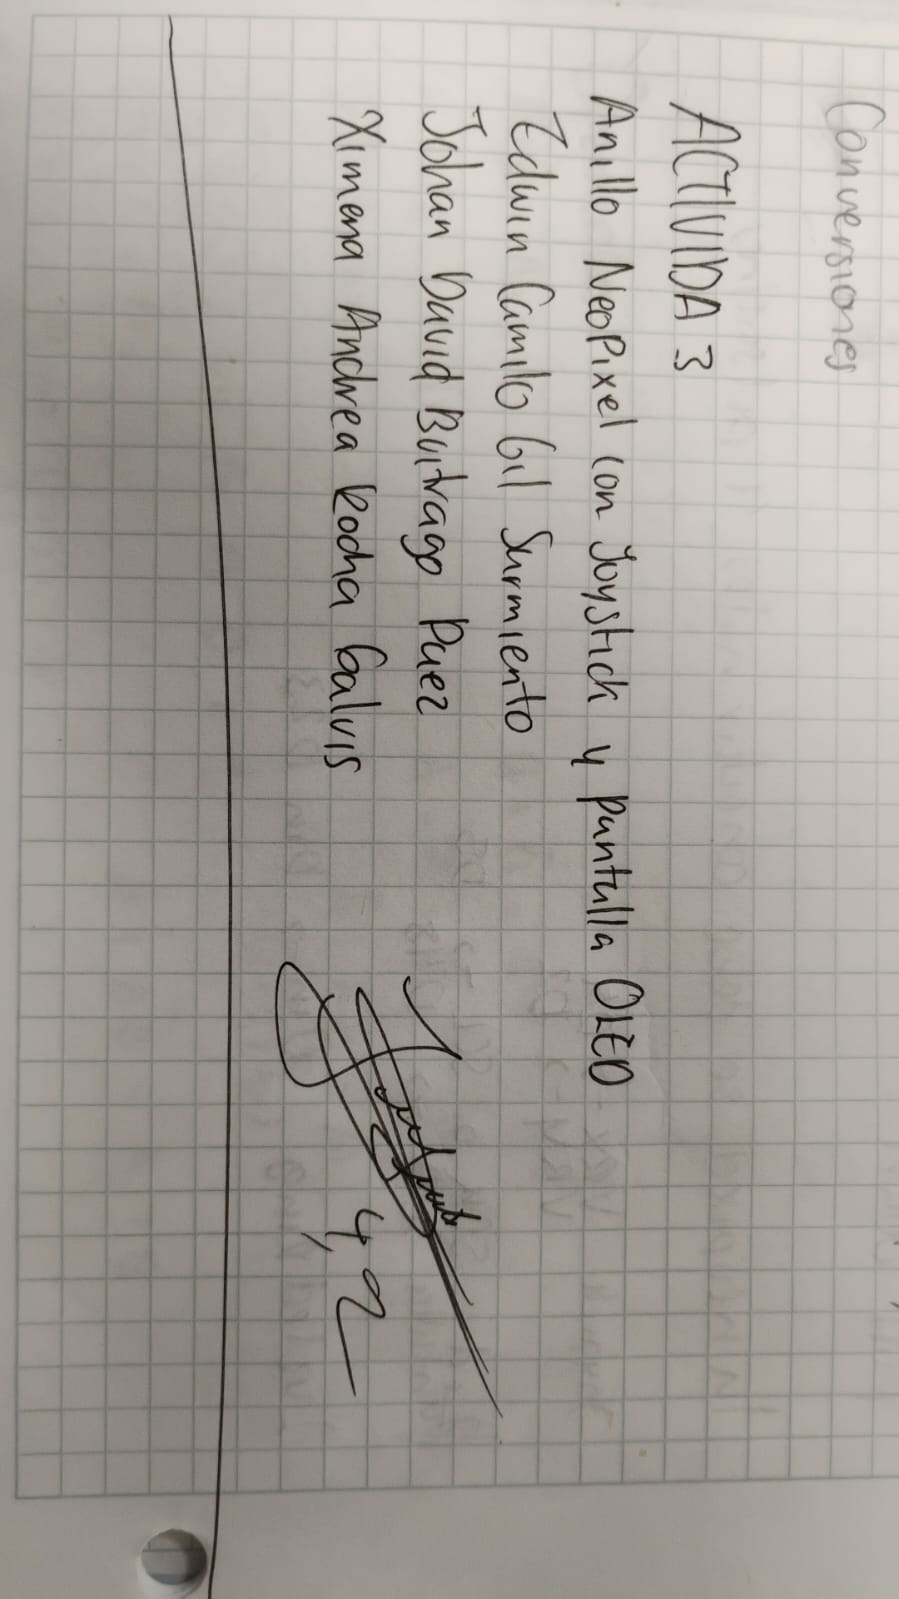 Conversiones
ACTIVIDA 3
Anillo NeoPixel con Joystick y pantalla OLED
Edwin Camilo Gil Sarmiento
Johan David Buitrago Paez
Ximena Andrea Rocha Galvis
4,2